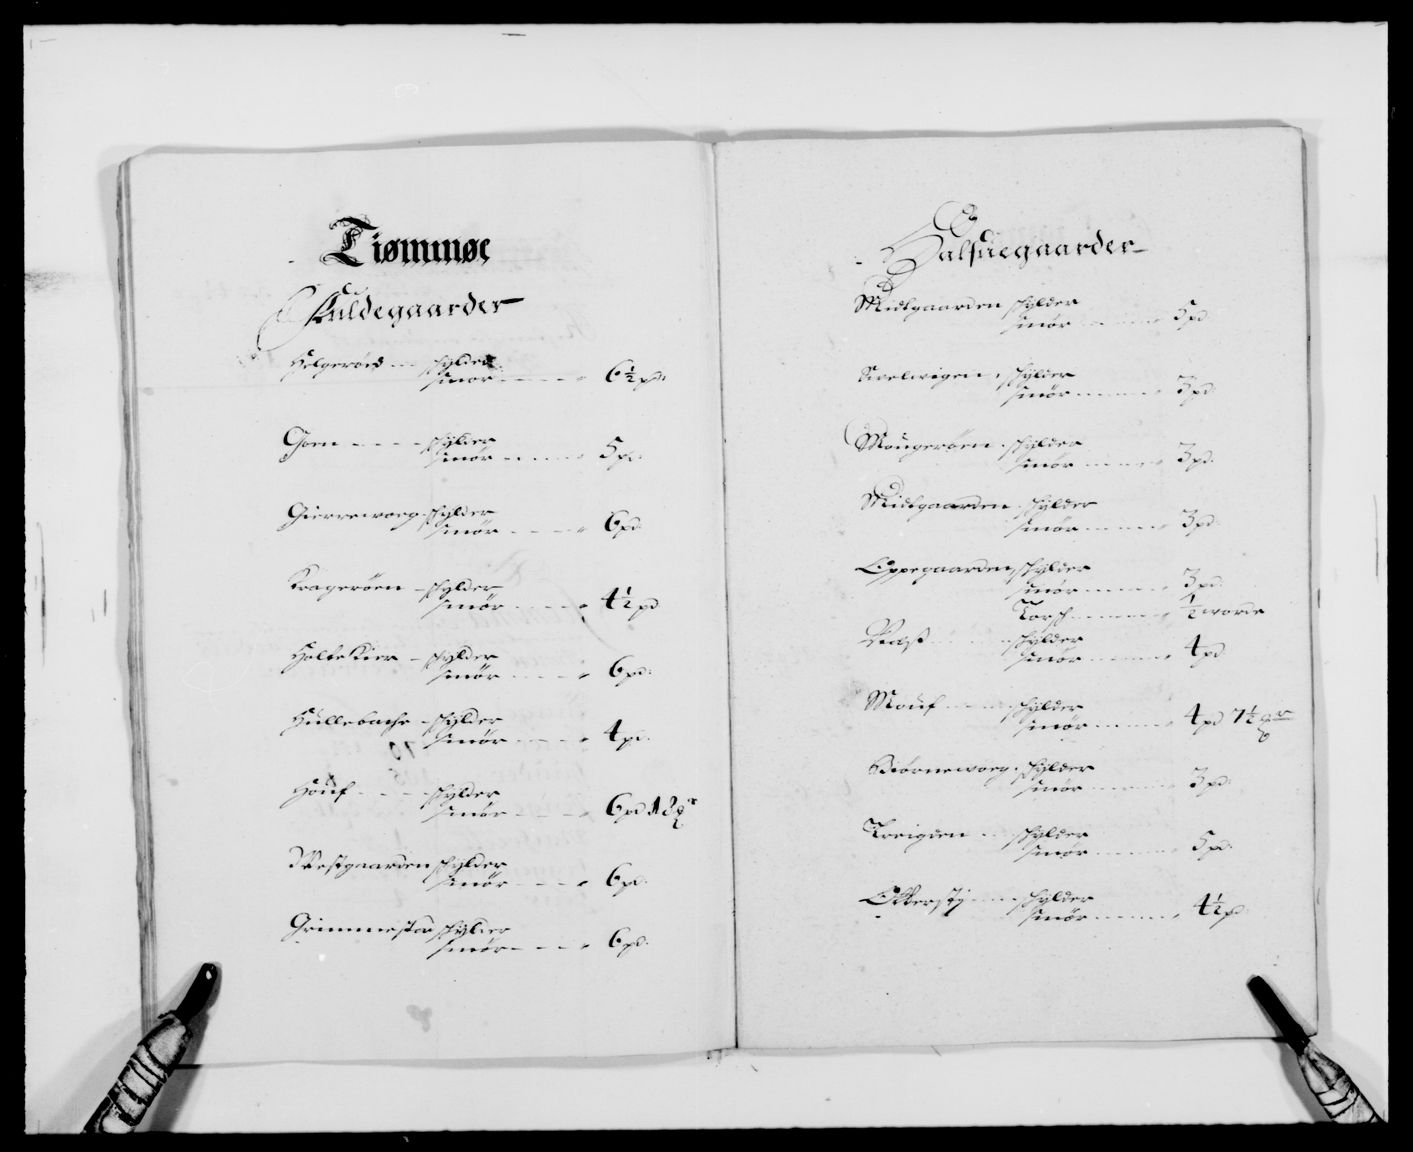 Tiømmøe
Fuldegaarder
Helgeröed - - schylder
smör - - - - 6½ pd:
Goen - - - - schylder
smör - - - - 5 pd:
Gierrewoeg schylder
smör - - - - 6 pd:
Krageröen - schylder
smör - - - - 4½ pd
HolteKier - schylder
smör - - - - 6 pd:
Hullebache - schylder
smör - - - - 4 pd:
Houf - - - - schylder
smör - - - - 6 pd 18
Westgaarden schylder
smör - - - - 6 pd:
Grimmestad schylder
smör - - - - 6 pd:
Halfuegaarder
Midtgaarden schylder
smör - - - - 5 pd:
Svelwigen schylder
smör - - - - 3 pd:
Mougeröen schylder
smör - - - - 3 pd:
Midtgaarden schylder
smör - - - - 3 pd:
Oppegaarden schylder
smör - - - - 3 pd:
Torsch - - - - ½ worde
schylder
smör - - - - 4 pd
Mouf - - - schylder
smör - - - - 4 pd 7½
Biörnewoeg schylder
smör - - - - 3 pd:
schylder
smör - - - - 5 pd:
schylder
smör - - - - 4½ pd: